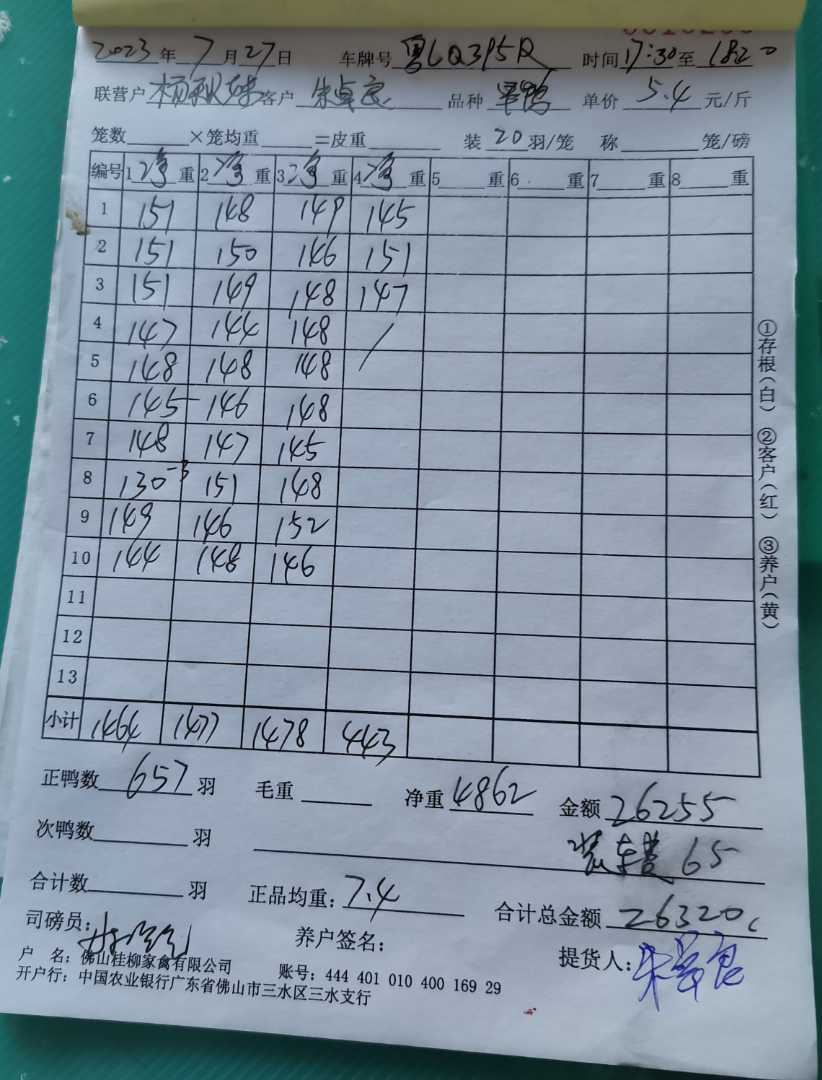 2023年7月27日 车牌号 粤LQ395R 时间17:30至1820
联营户 杨秋妹 客户 朱卓良 品种 旱鸭 单价 5.4 元/斤
笼数 ×笼均重 =皮重 装20羽/笼 称 笼/磅
编号 1净重 2净重 3净重 4净重 5 重 6 重 7 重 8 重
1 151 148 149 145
2 151 150 146 151
3 151 149 148 147
4 147 144 148 /
5 148 148 148
6 145 146 148
7 148 147 145
8 130-3 151 148
9 149 146 152
10 144 148 146
11
12
13
小计 1464 1477 1478 443
正鸭数 657 羽 毛重 净重 4862 金额 26255
次鸭数 羽 装车费 65
合计数 羽 正品均重: 7.4 合计总金额 26320
司磅员: 养户签名: 提货人: 朱卓良
户 名: 佛山桂柳家禽有限公司 账号: 444 401 010 400 169 29
开户行: 中国农业银行广东省佛山市三水区三水支行
①存根(白) ②客户(红) ③养户(黄)